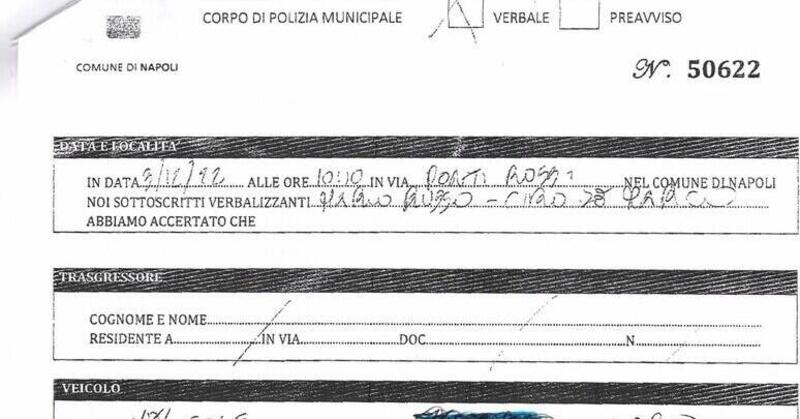 CORPO DI POLIZIA MUNICIPALE VERBALE PREAVVISO
COMUNE DI NAPOLI
N°. 50622
DATA E LOCALITA'
IN DATA 3/12/22 ALLE ORE 10:10 IN VIA PONTI ROSSI NEL COMUNE DI NAPOLI
NOI SOTTOSCRITTI VERBALIZZANTI MARIO RUSSO - CIRO
ABBIAMO ACCERTATO CHE
TRASGRESSORE
COGNOME E NOME
RESIDENTE A IN VIA DOC N
VEICOLO